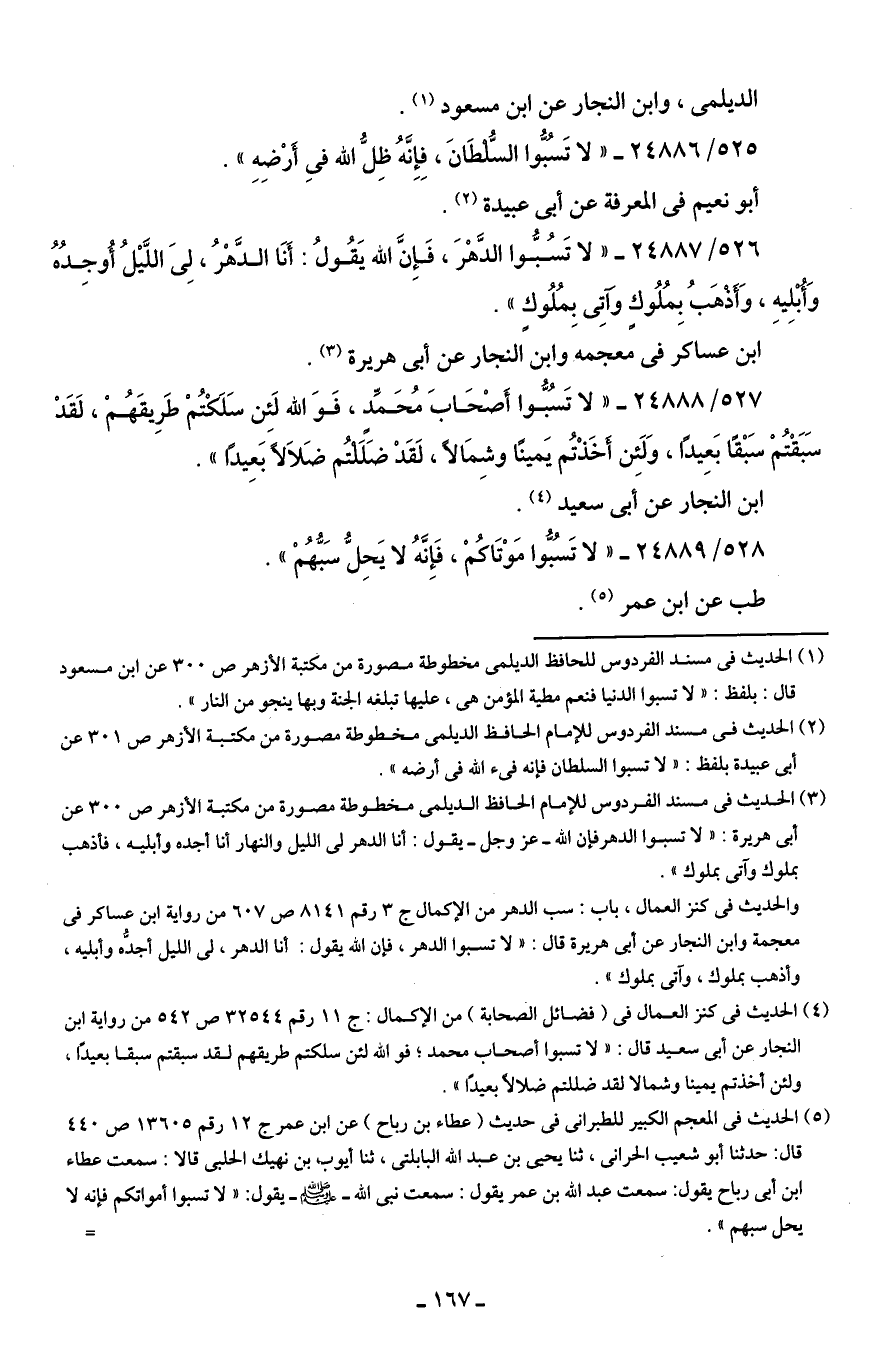 الديلمى ، وابن النجار عن ابن مسعود (١) .
٥٢٥/ ٢٤٨٨٦ ـ « لا تَسبُّوا السُّلْطَانَ ، فِإِنَّهُ ظِلُّ الله فىِ أَرْضِهِ » .
أبو نعيم فى المعرفة عن أبى عبيدة (٢) .
٥٢٦/ ٢٤٨٨٧ ـ « لا تَسُبُّوا الدَّهْرَ ، فَإِنَّ الله يَقُولُ : أَنَا الدَّهْرُ ، لِىَ اللَّيْلُ أُوجِدُهُ
وَأُبْلِيهِ ، وَأَذْهَبُ بِمُلُوكٍ وَآتِى بِمُلُوكٍ » .
ابن عساكر فى معجمه وابن النجار عن أبى هريرة (٣) .
٥٢٧/ ٢٤٨٨٨ ـ « لا تَسبُّوا أَصْحَابَ مُحَمَّدٍ ، فَوَ الله لَئِن سَلَكْتُمْ طَرِيقَهُمْ ، لَقَدْ
سَبَقْتُمْ سَبْقًا بَعِيدًا ، وَلَئِن أَخَذْتُم يَمينًا وشِمالاً ، لَقَدْ ضَلَلْتُم ضَلاَلاً بَعِيدًا » .
ابن النجار عن أبى سعيد (٤) .
٥٢٨/ ٢٤٨٨٩ ـ « لا تَسُبُّوا مَوْتَاكُمْ ، فَإِنَّهُ لا يَحِلُّ سَبُّهُمْ » .
طب عن ابن عمر (٥) .
(١) الحديث فى مسند الفردوس للحافظ الديلمى مخطوطة مصورة من مكتبة الأزهر ص ٣٠٠ عن ابن مسعود
قال : بلفظ : « لا تسبوا الدنيا فنعم مطية المؤمن هى ، عليها تبلغه الجنة وبها ينجو من النار » .
(٢) الحديث فى مسند الفردوس للإمام الحافظ الديلمى مخطوطة مصورة من مكتبة الأزهر ص ٣٠١ عن
أبى عبيدة بلفظ : « لا تسبوا السلطان فإنه فىء الله فى أرضه » .
(٣) الحديث فى مسند الفردوس للإمام الحافظ الديلمى مخطوطة مصورة من مكتبة الأزهر ص ٣٠٠ عن
أبى هريرة : « لا تسبوا الدهرفإن الله ـ عز وجل ـ يقول : أنا الدهر لى الليل والنهار أنا أجده وأبليه ، فأذهب
بملوك وآتى بملوك » .
والحديث فى كنز العمال ، باب : سب الدهر من الإكمال ج ٣ رقم ٨١٤١ ص ٦٠٧ من رواية ابن عساكر فى
معجمة وابن النجار عن أبى هريرة قال : « لا تسبوا الدهر ، فإن الله يقول : أنا الدهر ، لى الليل أجدُّه وأبليه ،
وأذهب بملوك ، وآتى بملوك » .
(٤) الحديث فى كنز العمال فى ( فضائل الصحابة ) من الإكمال : ج ١١ رقم ٣٢٥٤٤ ص ٥٤٢ من رواية ابن
النجار عن أبى سعيد قال : « لا تسبوا أصحاب محمد ؛ فو الله لئن سلكتم طريقهم لقد سبقتم سبقا بعيدًا ،
ولئن أخذتم يمينا وشمالا لقد ضللتم ضلالاً بعيدًا » .
(٥) الحديث فى المعجم الكبير للطبرانى فى حديث ( عطاء بن رباح ) عن ابن عمر ج ١٢ رقم ١٣٦٠٥ ص ٤٤٠
قال: حدثنا أبو شعيب الحرانى ، ثنا يحيى بن عبد الله البابلتى ، ثنا أيوب بن نهيك الحلبى قالا : سمعت عطاء
ابن أبى رباح يقول: سمعت عبد الله بن عمر يقول : سمعت نبى الله ـ ﷺ ـ يقول: « لا تسبوا أمواتكم فإنه لا
يحل سبهم » . =
ـ ١٦٧ ـ